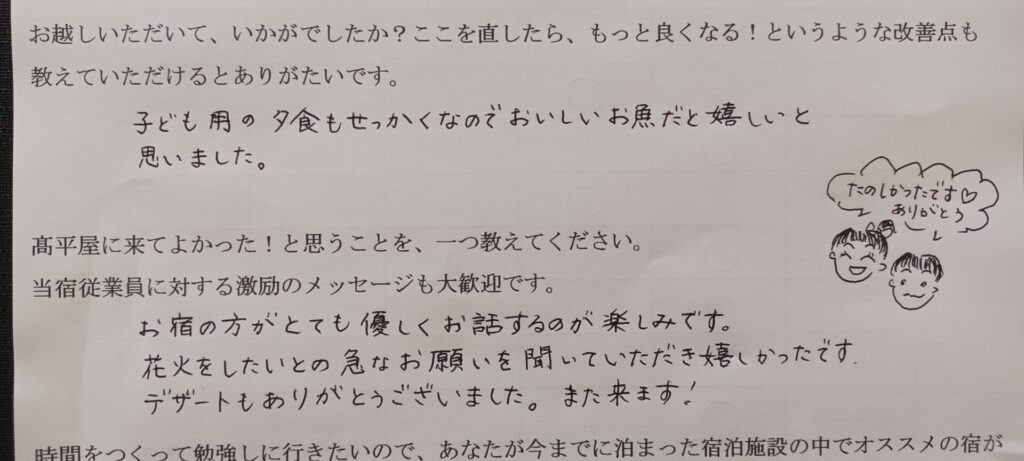 お越しいただいて、いかがでしたか？ここを直したら、もっと良くなる！というような改善点も
教えていただけるとありがたいです。
子ども用の夕食もせっかくなのでおいしいお魚だと嬉しいと
思いました。
たのしかったです♡
ありがとう
髙平屋に来てよかった！と思うことを、一つ教えてください。
当宿従業員に対する激励のメッセージも大歓迎です。
お宿の方がとても優しくお話するのが楽しみです。
花火をしたいとの急なお願いを聞いていただき嬉しかったです.
デザートもありがとうございました。また来ます！
時間をつくって勉強しに行きたいので、あなたが今までに泊まった宿泊施設の中でオススメの宿が